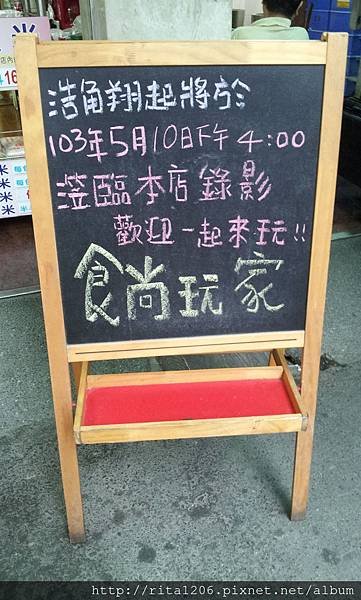 浩角翔起將於
103年5月10日下午4:00
蒞臨本店錄影
歡迎一起來玩!!
食尚玩家
米
16
http://rita1206.pixnet.net/album